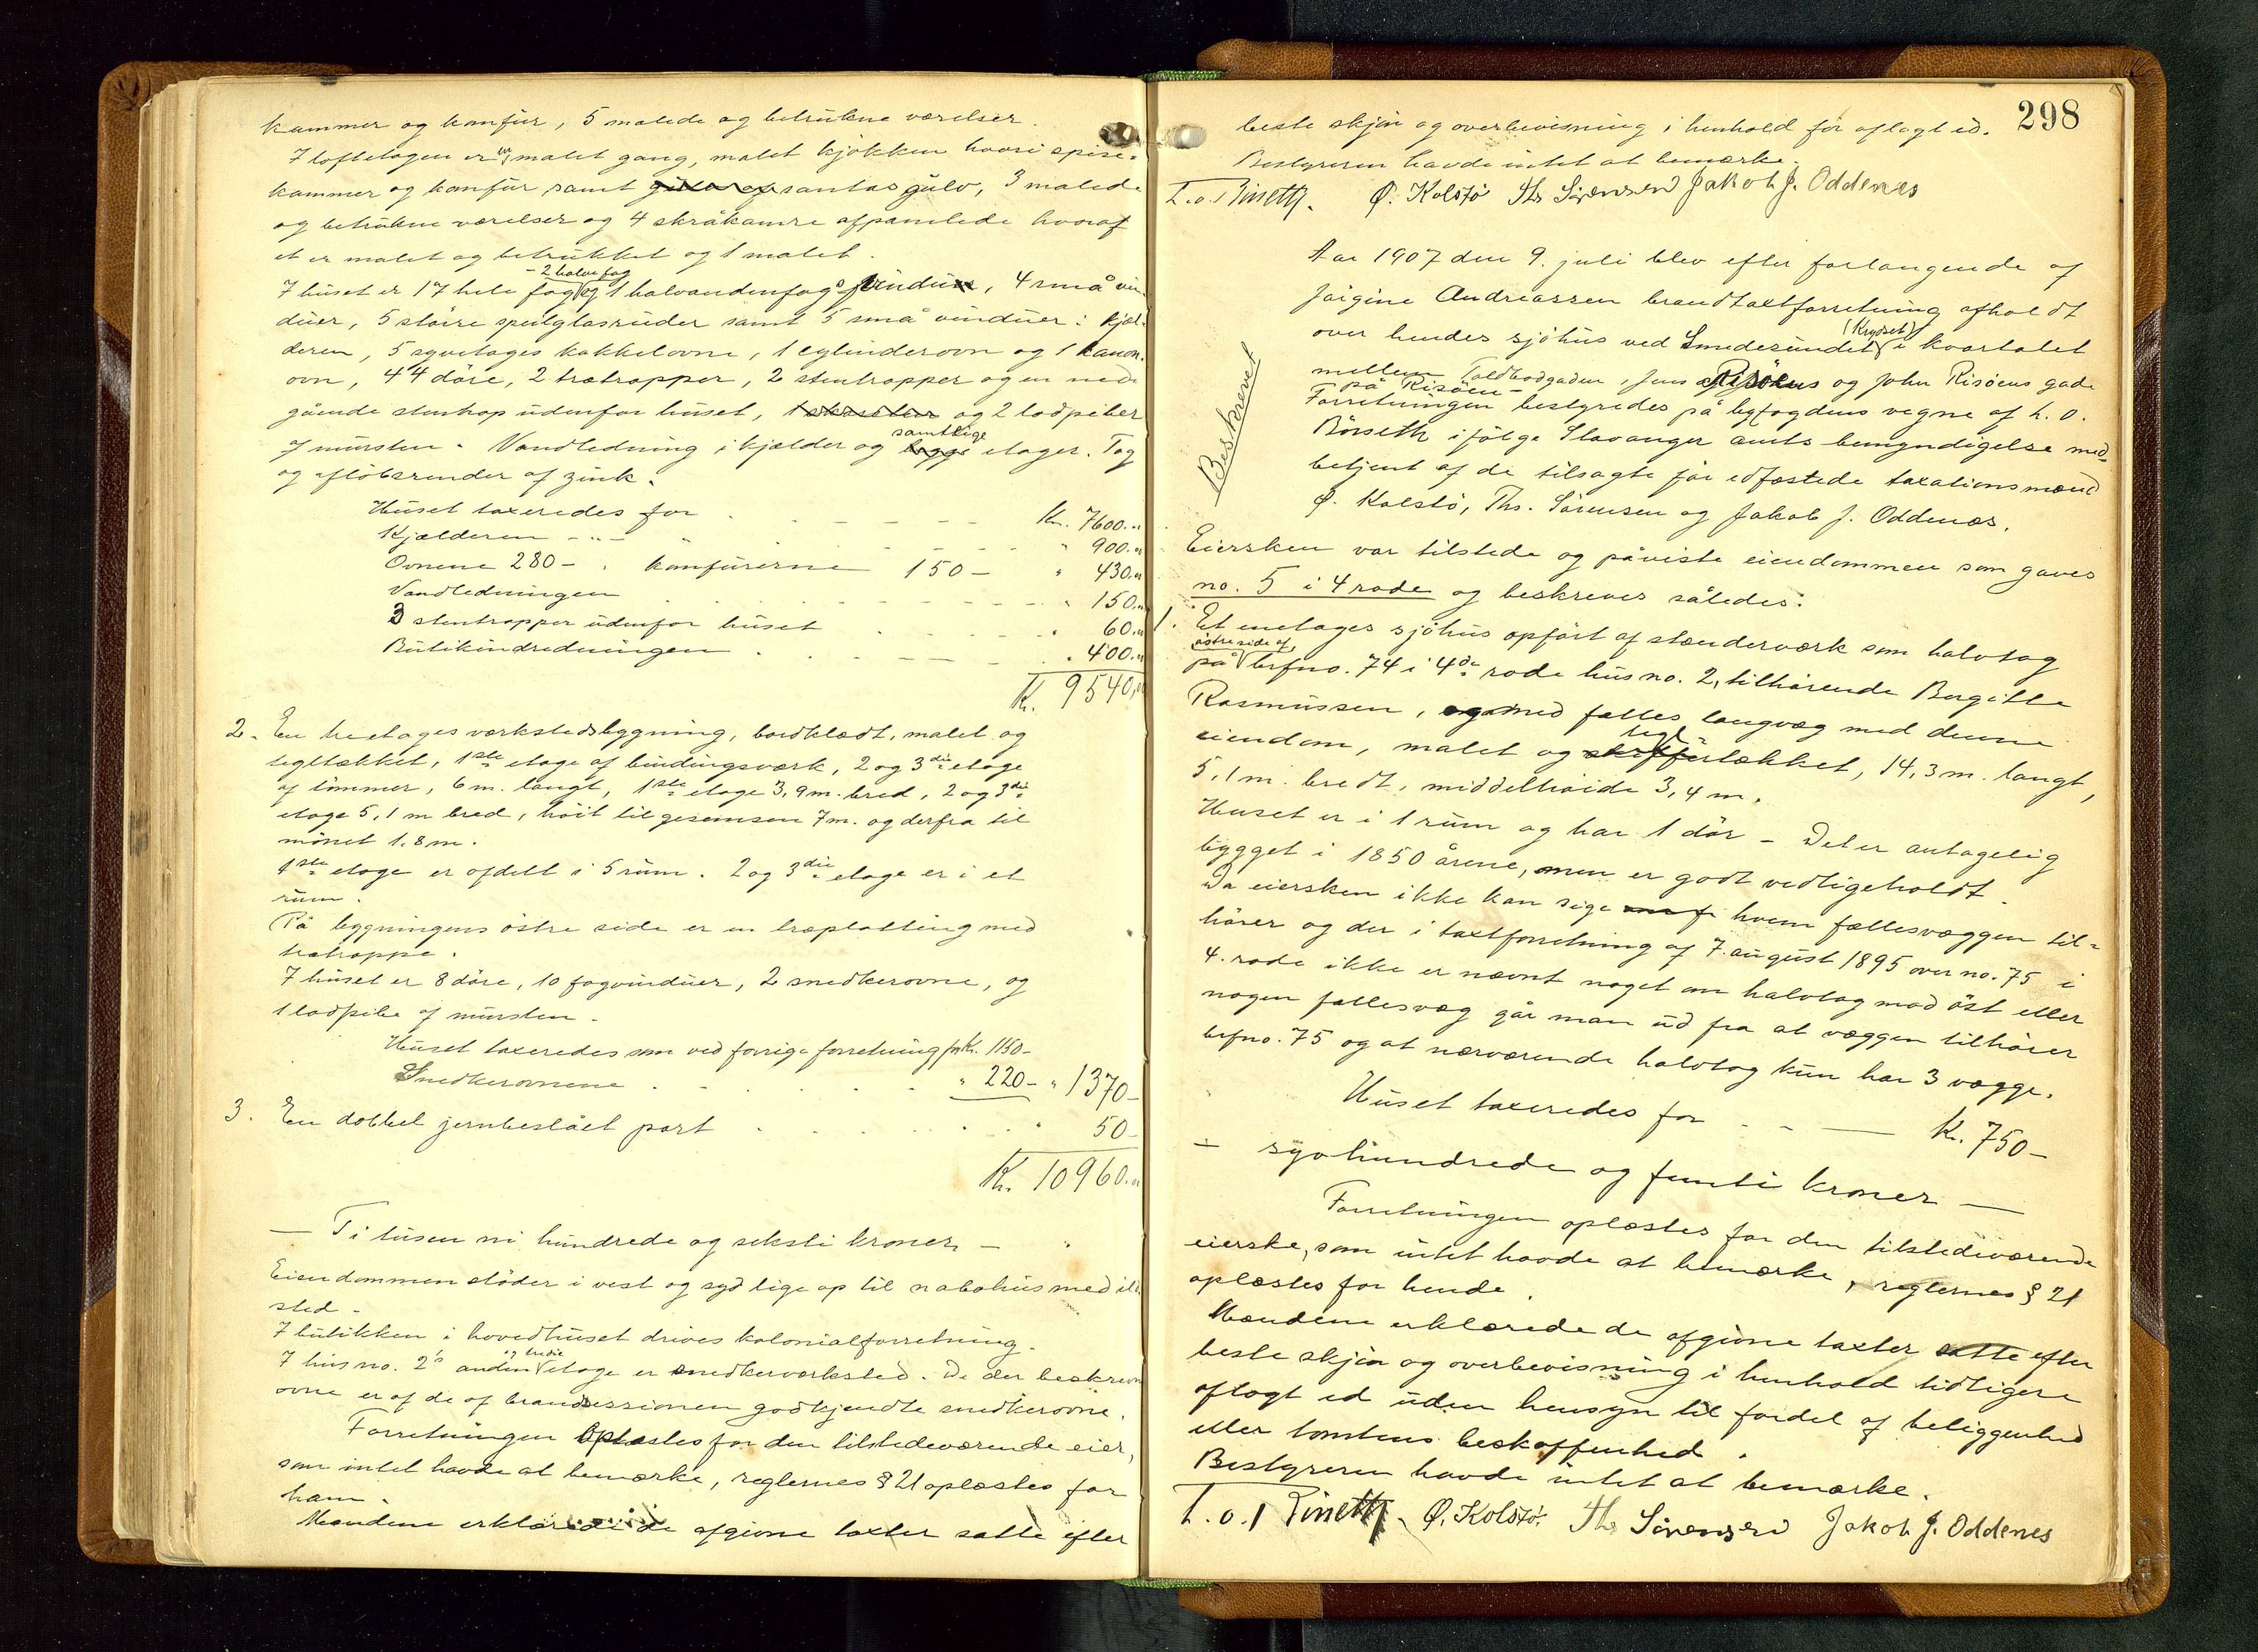 kammer og komfür, 5 malede og betrükne værelser.
I loftetagen er malet gang, malet kjøkken hvori spise-
kammer og komfür samt gülv, 3 malede
og betrükne værelser og 4 skråkamre afpanelede hvoraf
et er malet og betrükket og 1 malet.
- 2 halve fag
I hüset er 17 hele fag og 1 halvandenfags vindü, 4 små vin-
düer, 5 større speilglasrüder samt 5 små vindüer i kjæl-
deren, 5 syvetages kakkelovne, 1 cylinderovn og 1 kanon-
ovn, 44 døre, 2 trætrapper, 2 stentrapper og en ned-
gående stentrap üdenfor hüset, og 2 lodpiber
samtlige
af mürsten. Vandledning i kjælder og etager. Tag
og afløbsrender af zink.
Hüset taxeredes for Kr. 7600.00
Kjælderen - " - " 900.00
Ovnene 280 - . komfürerne 150 - " 430.00
Vandledningen " 150.00
3 stentrapper üdenfor hüset " 60.00
Bütikindredningen " 400.00
Kr. 9540,00
2. En treetages værkstedsbygning, bordklædt, malet og
tegltækket, 1ste etage af bindingsværk, 2 og 3die etage
af tømmer, 6 m. langt, 1ste etage 3,9 m. bred, 2 og 3die
etage 5,1 m bred, høit til gesemsen 7 m. og derfra til
mønet 1.8 m.
1ste etage er afdelt i 5 rüm. 2 og 3die etage er i et
rüm.
På bygningens østre side er en træplatting med
trætrappe.
I hüset er 8 døre, 10 fagvindüer, 2 snedkerovne, og
1 lodpibe af mürsten.
Hüset taxeredes som ved forrige forretning for Kr. 1150-
Snedkerovnene " 220- " 1370-
3. En dobbel jernbeslået port " 50-
Kr. 10960.00
- Ti tüsen ni hündrede og seksti kroner -
Eiendommen støder i vest og syd lige op til nabohüs med ild-
sted.
I bütikken i hovedhüset drives kolonialforretning.
og tredie
I hüs no. 2's anden etage er snedkerværksted. De der beskrevne
ovne er af de af godkjendte snedkerovne.
Forretningen oplæstes for den tilstedeværende eier,
som intet havde at bemærke, reglernes § 21 oplæstes for
ham.
Mændene erklærede de afgivne taxter satte efter
298
beste skjøn og overbevisning i henhold før aflagt ed.
Bestyreren havde intet at bemærke.
Ø. Kolstø Ths Sørensen Jakob J. Oddenes
Aar 1907 den 9. juli blev efter forlangende af
Jørgine Andreassen brandtaxtforretning afholdt
(Krydset)
over hendes sjøhüs ved Smedesündet i kvartalet
mellem Toldbodgaden, Jens og John Risøens gade
på Risøen -
Forretningen bestyredes på byfogdens vegne af L. O.
Børseth ifølge Stavanger amts bemyndigelse med-
betjent af de tilsagte før edfæstede taxationsmænd
Ø. Kolstø, Ths. Sørensen og Jakob J. Oddenes.
Beskrevet
Eiersken var tilstede og påviste eiendommen som gaves
no. 5 i 4 rode og beskrives således:
1. Et enetages sjøhüs opført af stænderværk som halvtag
østre side af
på brfno. 74 i 4de rode hüs no. 2, tilhørende Bergitte
Rasmüssen, med fælles langvæg med denne
tegl
eiendom, malet og tækket, 14,3 m. langt,
5,1 m. bredt, middelhøide 3,4 m.
Hüset er i 1 rüm og har 1 dør - Det er antagelig
bygget i 1850 årene, men er godt vedligeholdt.
Da eiersken ikke kan sige hvem fællesvæggen til-
hører og der i taxtforretning af 7. aügüst 1895 over no. 75 i
4. rode ikke er nævnt noget om halvtag mod øst eller
nogen fællesvæg går man üd fra at væggen tilhører
brfno. 75 og at nærværende halvtag kün har 3 vægge.
Hüset taxeredes for Kr. 750-
- syvhundrede og femti kroner -
Forretningen oplæstes for den tilstedeværende
eierske, som intet havde at bemærke, reglernes § 21
oplæstes for hende.
Mændene erklærede de afgivne taxter satte efter
beste skjøn og overbevisning i henhold tidligere
aflagt ed üden hensyn til fordel af beliggenhed
eller tomtens beskaffenhed.
Bestyreren havde intet at bemærke.
Ø. Kolstø. Ths Sørensen Jakob J. Oddenes